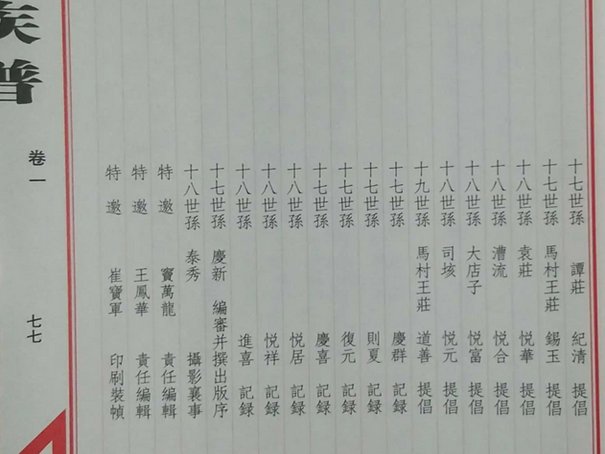 十七世孫 譚莊 紀清 提倡
十七世孫 馬村王莊 錫玉 提倡
十八世孫 袁莊 悦華 提倡
十八世孫 漕流 悦合 提倡
十八世孫 大店子 悦富 提倡
十八世孫 司垓 悦元 提倡
十九世孫 馬村王莊 道善 提倡
十七世孫 慶群 記録
十七世孫 則夏 記録
十七世孫 復元 記録
十七世孫 慶喜 記録
十八世孫 悦居 記録
十八世孫 悦祥 記録
十八世孫 進喜 記録
十七世孫 慶新 編審并撰出版序
十八世孫 泰秀 攝影襄事
特邀 竇萬龍 責任編輯
特邀 王鳳華 責任編輯
特邀 崔寶軍 印刷裝幀
族譜
卷一
七七